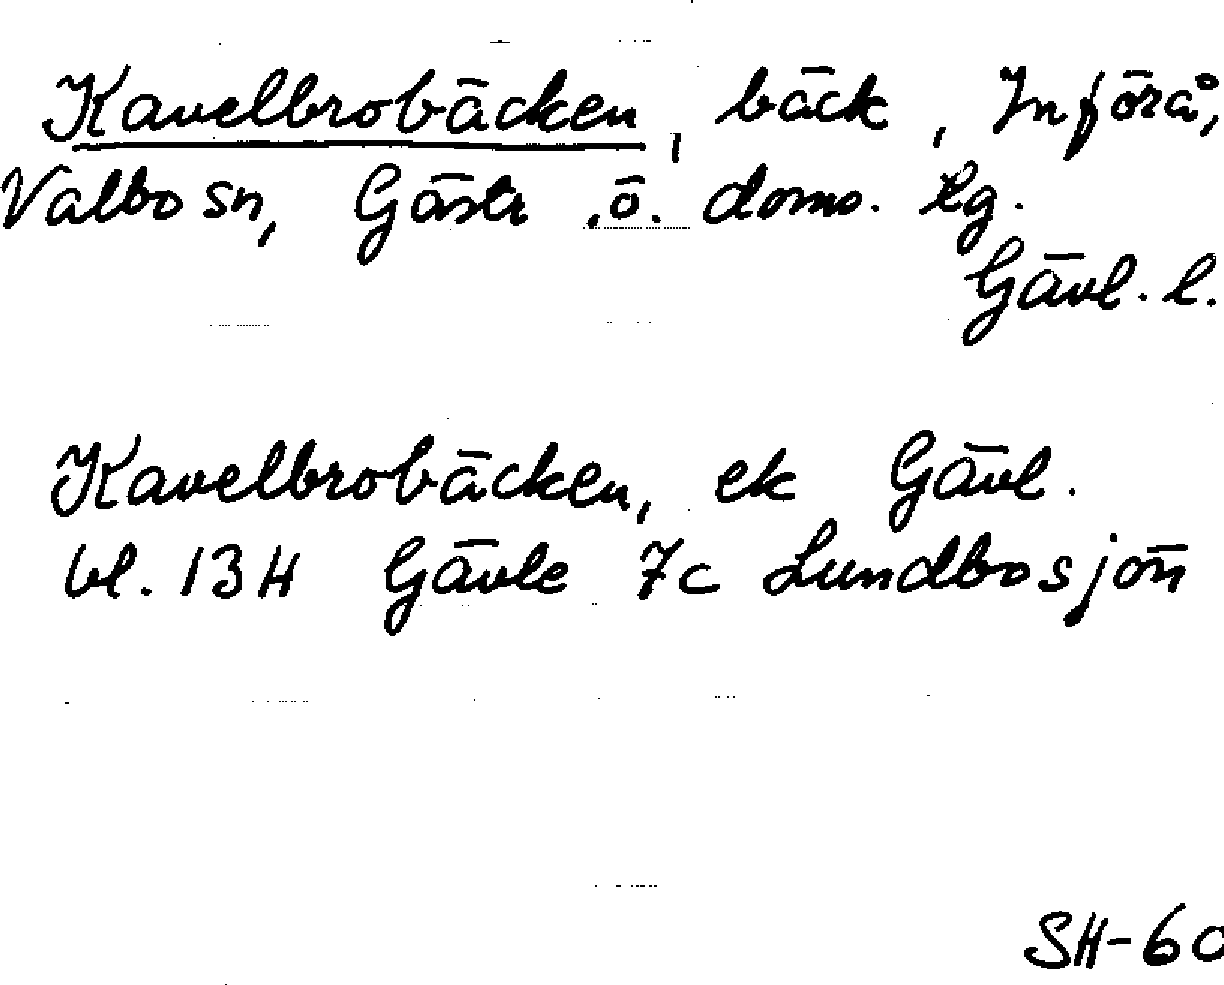 Kavelbrobäcken, bäck, Införå,
Valbo sn, Gästr. ö. doms. lg.
Gävl. l.
Kavelbrobäcken, ek Gävl.
bl. 13H Gävle 7c Lundbosjön
SH-60